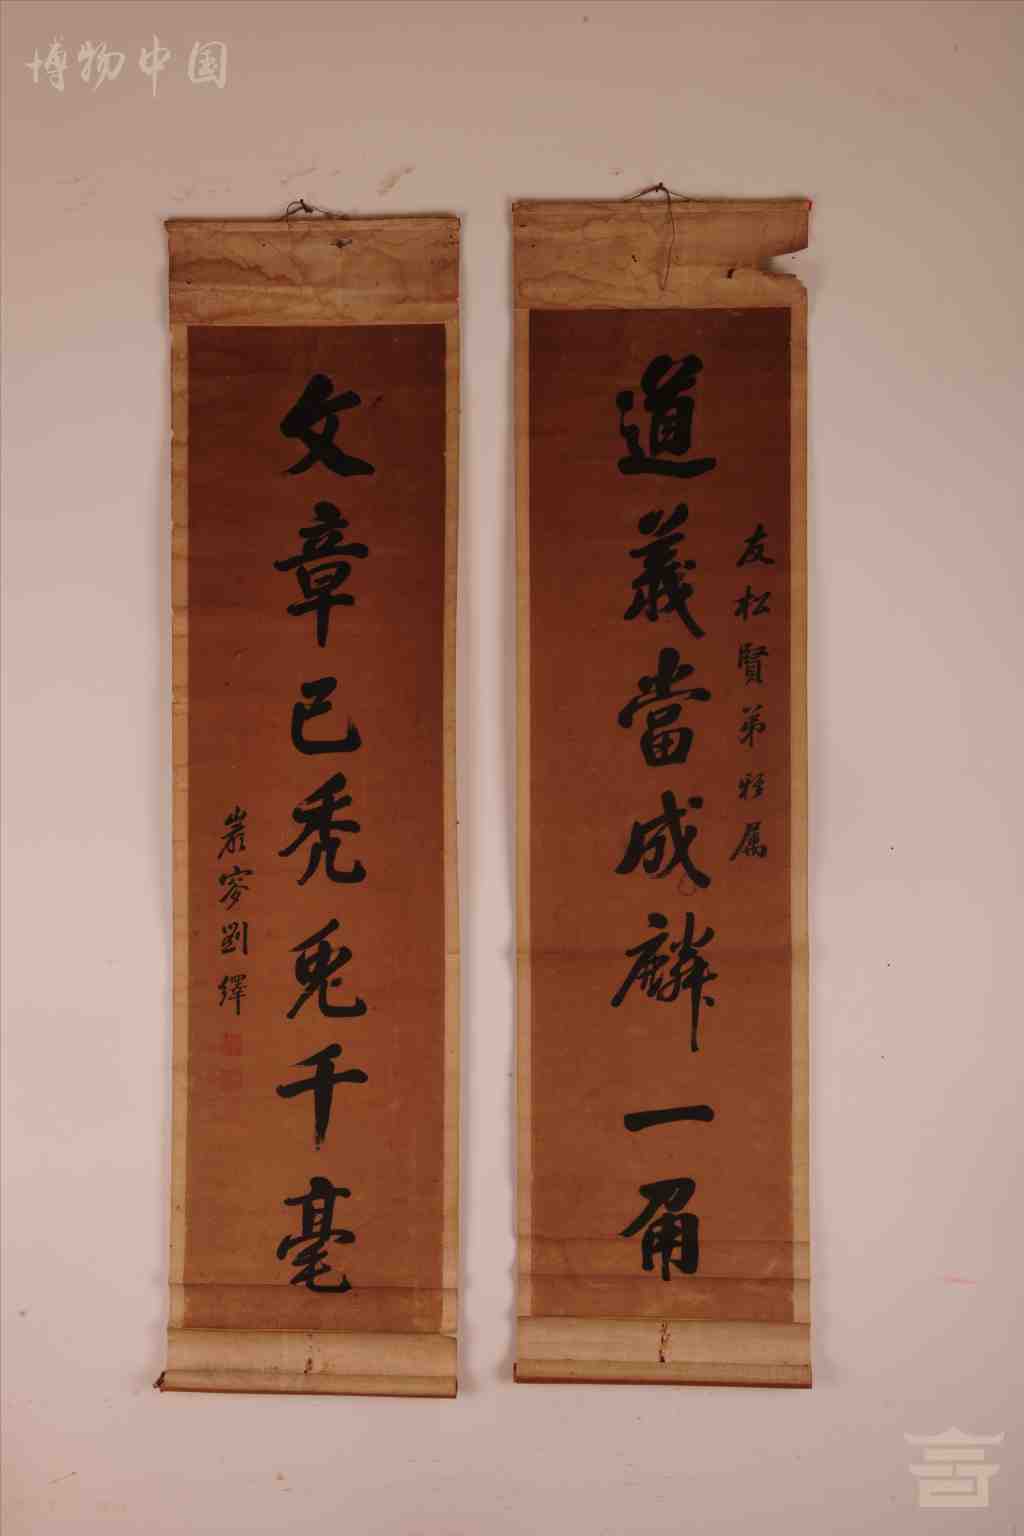 博物中国
友松賢弟雅属
道義當成麟一角
文章已禿兎千毫
巖寥劉繹